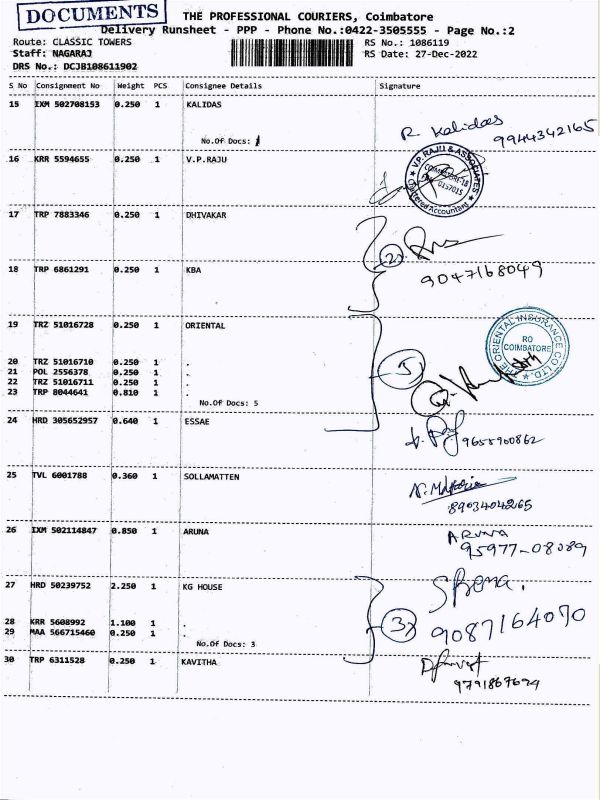 DOCUMENTS
THE PROFESSIONAL COURIERS, Coimbatore
Delivery Runsheet - PPP - Phone No.:0422-3505555 - Page No.:2
Route: CLASSIC TOWERS
RS No.: 1086119
Staff: NAGARAJ
RS Date: 27-Dec-2022
DRS No.: DCJB108611902
S No Consignment No Weight PCS Consignee Details Signature
15 IXM 502708153 0.250 1 KALIDAS
No.Of Docs: 1
R. Kalidas
9944342165
16 KRR 5594655 0.250 1 V.P.RAJU
V.P. RAJU & ASSOCIATES
COIMBATORE-18
Chartered Accountant
17 TRP 7883346 0.250 1 DHIVAKAR
2
18 TRP 6861291 0.250 1 KBA
9047168049
19 TRZ 51016728 0.250 1 ORIENTAL
THE ORIENTAL INSURANCE CO LTD.
RO
COIMBATORE
20 TRZ 51016710 0.250 1 .
21 POL 2556378 0.250 1 .
22 TRZ 51016711 0.250 1 .
23 TRP 8044641 0.810 1 .
No.Of Docs: 5
5
24 HRD 305652957 0.640 1 ESSAE
9655900862
25 TVL 6001788 0.360 1 SOLLAMATTEN
8903404265
26 IXM 502114847 0.850 1 ARUNA
ARUNA
95977-08089
27 HRD 50239752 2.250 1 KG HOUSE
28 KRR 5608992 1.100 1 .
29 MAA 566715460 0.250 1 .
No.Of Docs: 3
3
9087164070
30 TRP 6311528 0.250 1 KAVITHA
9791867694